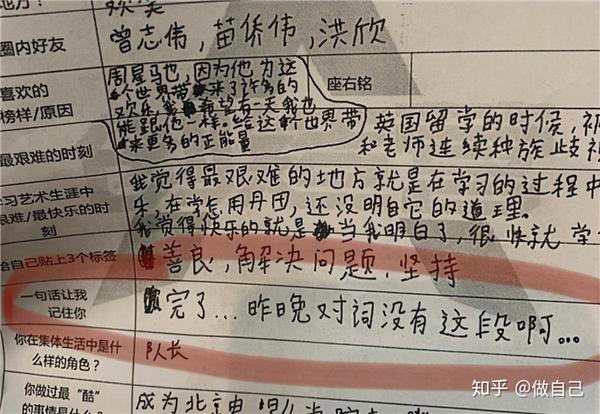 地方?
欢笑
圈内好友 曾志伟, 苗侨伟, 洪欣
喜欢的
榜样/原因
周星马也, 因为他为这
个世界带来了许多的
欢乐 希望有一天我也
能跟他一样给这个世界带
来更多的正能量
座右铭
最艰难的时刻
英国留学的时候, 被
和老师连续种族歧视
学习艺术生涯中
艰难/最快乐的时
刻
我觉得最艰难的地方就是在学习的过程中
乐. 在学怎用丹田, 还没明白它的道理.
我觉得快乐的就是当我明白了, 很快就学
给自己贴上3个标签 善良, 解决问题, 坚持
一句话让我
记住你
完了... 昨晚对词没有这段啊...
你在集体生活中是什
么样的角色?
队长
你做过最“酷”
的事情是什么?
成为北京电影学院
知乎 @做自己